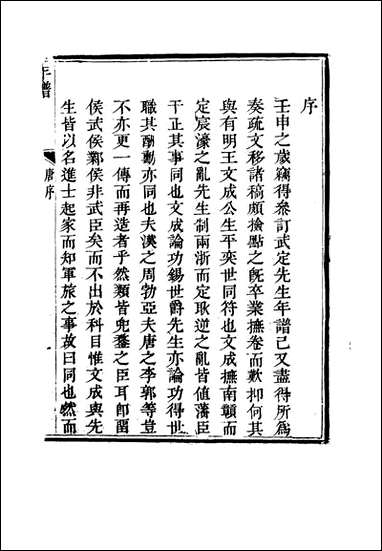 序
壬申之歲竊得叅訂武定先生年譜已又盡得所爲
奏疏文移諸稿頗撿點之旣卒業撫卷而歎抑何其
與有明王文成公生平奕世同符也文成撫南贛而
定宸濠之亂先生制兩浙而定耿逆之亂皆値藩臣
干正其事同也文成論功錫世爵先生亦論功得世
職其酧勳亦同也夫漢之周勃亞夫唐之李郭等豈
不亦更一傳而再造者乎然類皆兜鍪之臣耳卽留
侯武侯鄴侯非武臣矣而不出於科目惟文成與先
生皆以名進士起家而知軍旅之事故曰同也然而
年譜
唐序